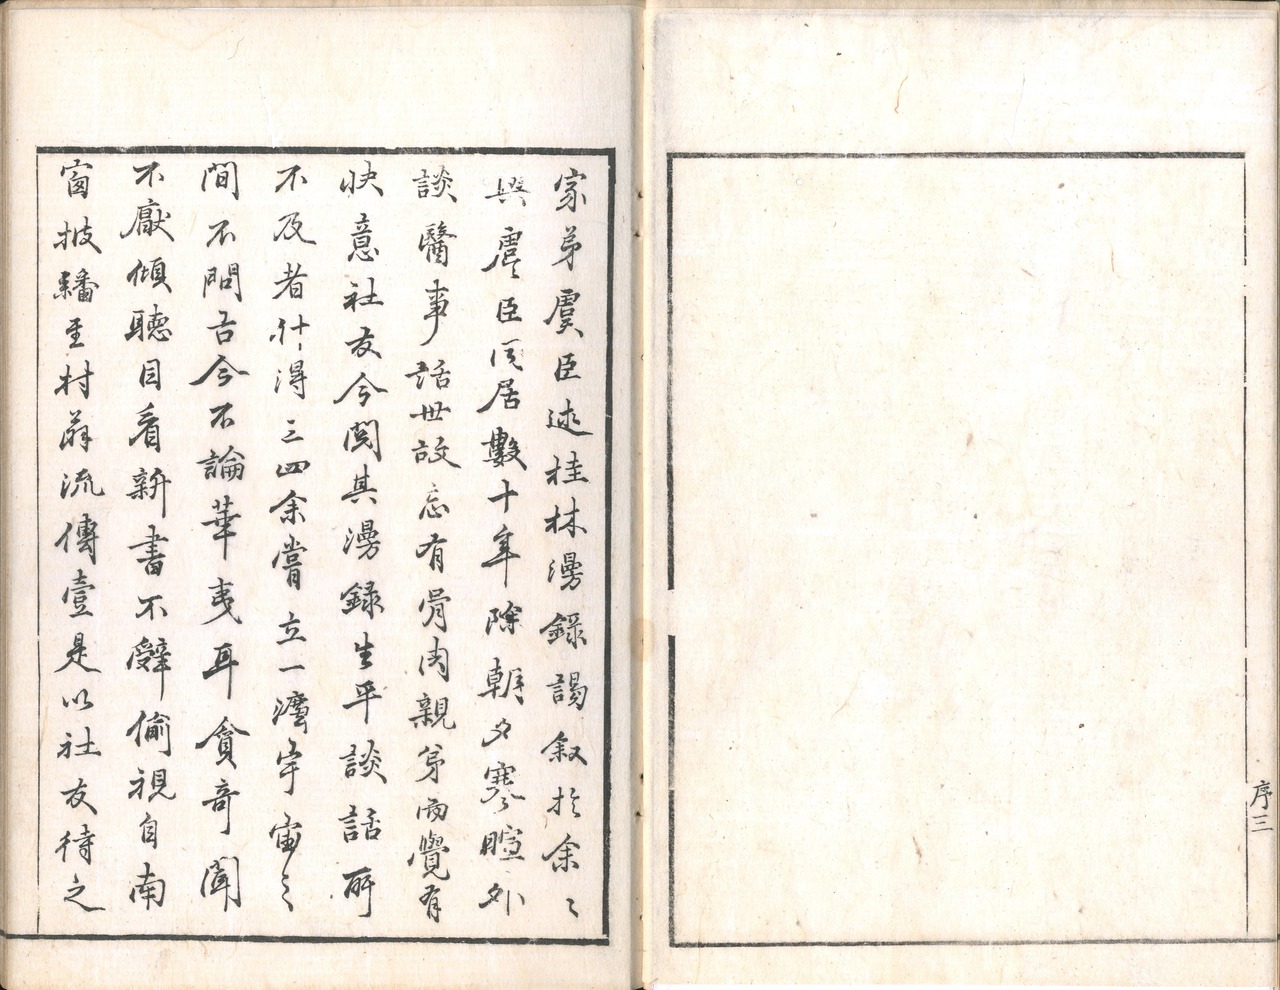 序三
家弟虞臣述桂林漫録謁叙於余々
與虞臣同居數十年除朝夕寒暄外
談醫事話世故忘有骨肉親弟而覺有
快意社友今閲其漫録生平談話所
不及者什得三四余嘗立一瀍宇宙之
間不問古今不論華夷耳貪奇聞
不厭傾聽目看新書不辭偷視自南
窗披繙至村薜流傳壹是以社友待之